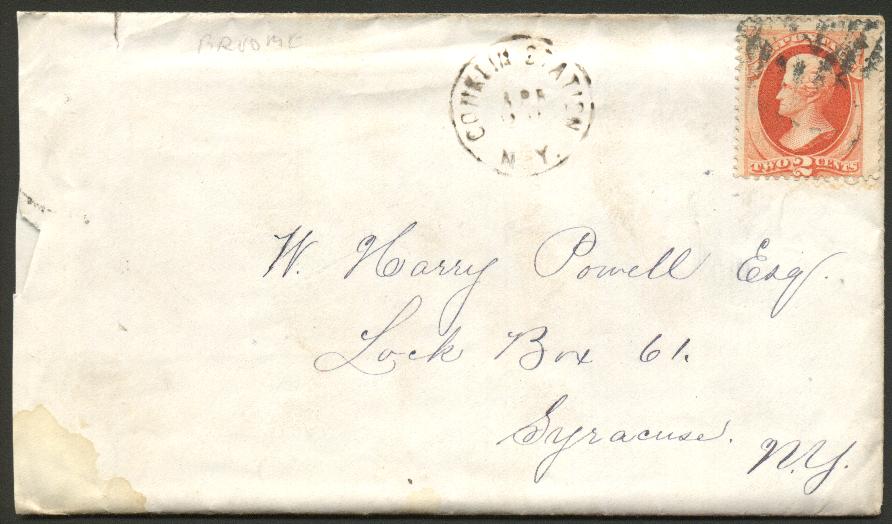 BROOME
CONKLIN STATION
APR
N.Y.
TWO 2 CENTS
W. Harry Powell Esq.
Lock Box 61.
Syracuse.
N.Y.